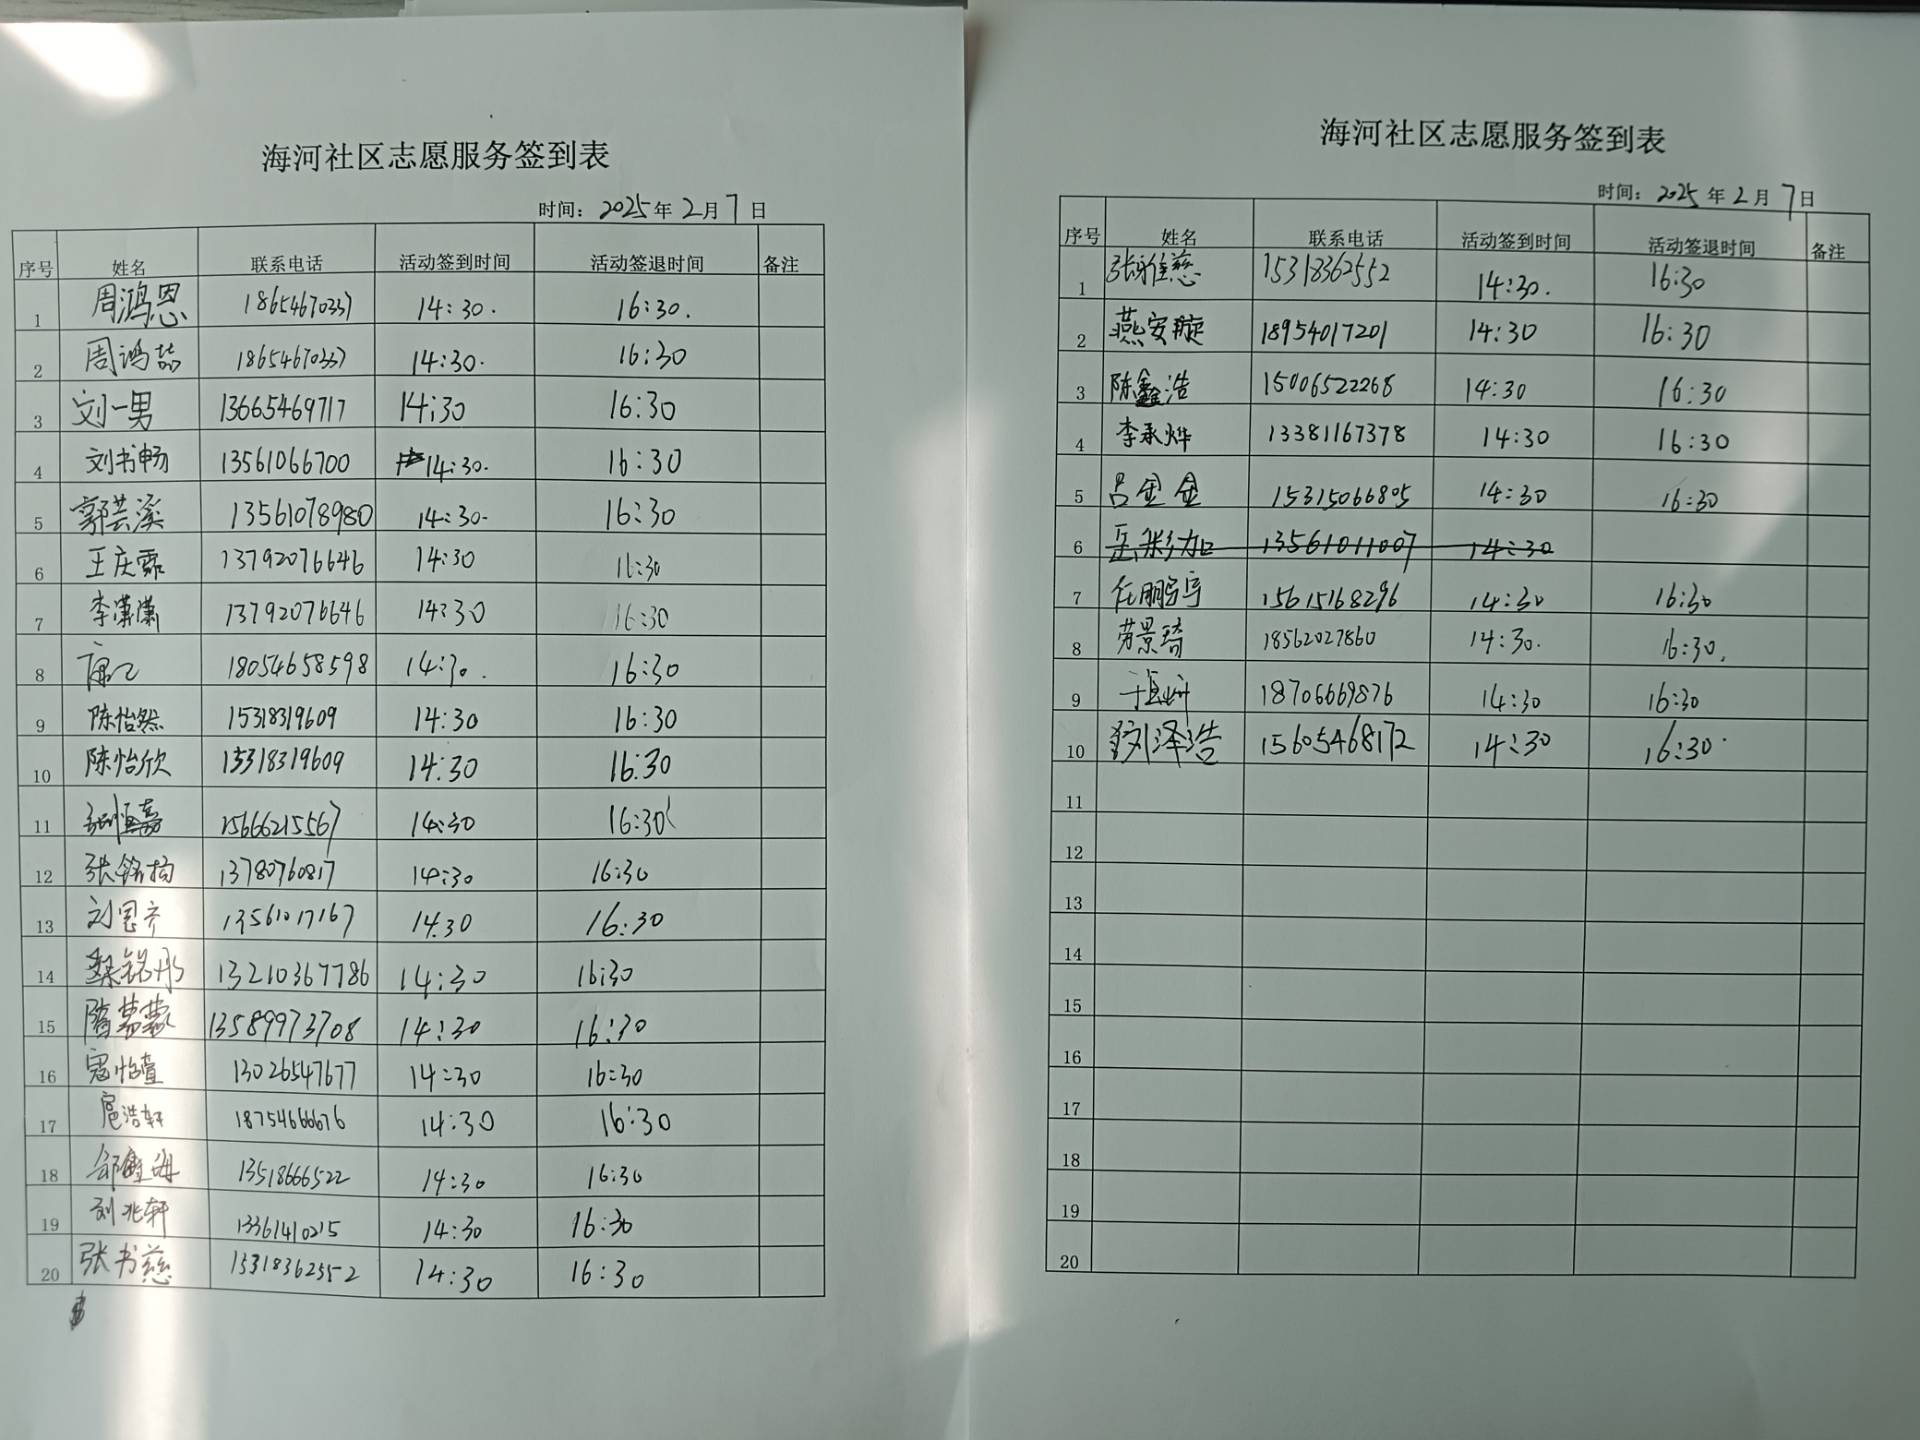 海河社区志愿服务签到表
时间: 2025 年 2 月 7 日
序号 姓名 联系电话 活动签到时间 活动签退时间 备注
1 周鸿恩 18654670337 14:30. 16:30.
2 周鸿喆 18654670337 14:30. 16:30
3 刘一男 13665469717 14:30 16:30
4 刘书畅 13561066700 14:30. 16:30
5 郭芸溪 13561078980 14:30. 16:30
6 王庆霖 13792076646 14:30 16:30
7 李潇潇 13792076646 14:30 16:30
8 18054658598 14:30. 16:30
9 陈怡然 15318319609 14:30 16:30
10 陈怡欣 15318319609 14:30 16:30
11 15666215567 14:30 16:30
12 张铭杨 13780760817 14:30 16:30
13 刘恩齐 13561017167 14:30 16:30
14 桑铭彤 13210367786 14:30 16:30
15 13589973708 14:30 16:30
16 寇怡萱 13026547677 14:30 16:30
17 扈浩轩 18754666676 14:30 16:30
18 13518666522 14:30 16:30
19 刘兆轩 13361410215 14:30 16:30
20 张书慈 15318362552 14:30 16:30
海河社区志愿服务签到表
时间: 2025 年 2 月 7 日
序号 姓名 联系电话 活动签到时间 活动签退时间 备注
1 张雅慈 15318362552 14:30. 16:30
2 燕安璇 18954017201 14:30 16:30
3 陈鑫浩 15006522268 14:30 16:30
4 李承烨 13381167378 14:30 16:30
5 吕金金 15315066805 14:30 16:30
6 13561011007 14:30
7 任鹏宇 15615168296 14:30 16:30
8 劳景琦 18562027860 14:30. 16:30.
9 18706669876 14:30 16:30
10 刘泽浩 15605468172 14:30 16:30
11
12
13
14
15
16
17
18
19
20